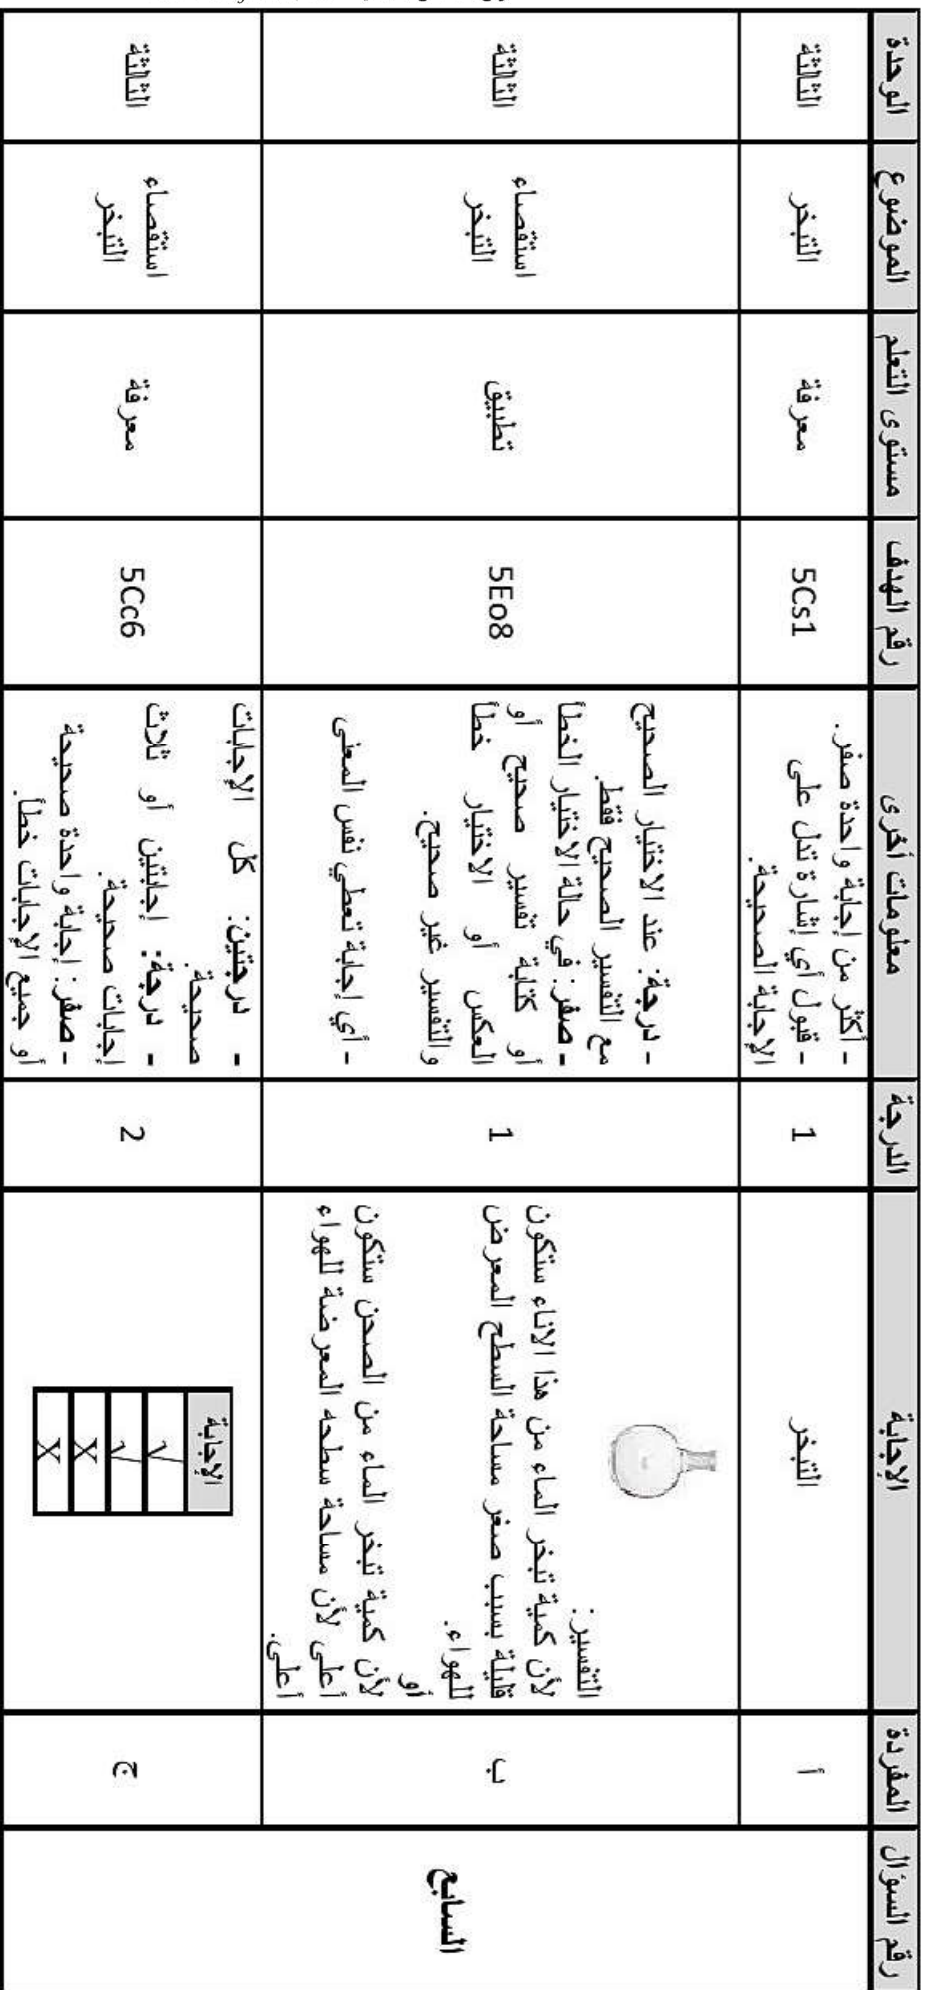 رقم السؤال
المفردة
الإجابة
الدرجة
معلومات أخرى
رقم الهدف
مستوى التعلم
الموضوع
الوحدة
السابع
أ
التبخر
1
- أكثر من إجابة واحدة صفر.
- قبول أي إشارة تدل على
الإجابة الصحيحة.
5Cs1
معرفة
التبخر
الثالثة
ب
التفسير:
لأن كمية تبخر الماء من هذا الاناء ستكون
قليلة بسبب صغر مساحة السطح المعرض
للهواء.
أو
لأن كمية تبخر الماء من الصحن ستكون
أعلى لأن مساحة سطحه المعرضة للهواء
أعلى.
1
- درجة: عند الاختيار الصحيح
مع التفسير الصحيح فقط.
- صفر: في حالة الاختيار الخطأ
أو كتابة تفسير صحيح أو
العكس أو الاختيار خطأ
والتفسير غير صحيح.
- أي إجابة تعطي نفس المعنى
5Eo8
تطبيق
استقصاء
التبخر
الثالثة
ج
الإجابة
√
√
X
X
2
- درجتين: كل الإجابات
صحيحة.
- درجة: إجابتين أو ثلاث
إجابات صحيحة.
- صفر: إجابة واحدة صحيحة
أو جميع الإجابات خطأ.
5Cc6
معرفة
استقصاء
التبخر
الثالثة